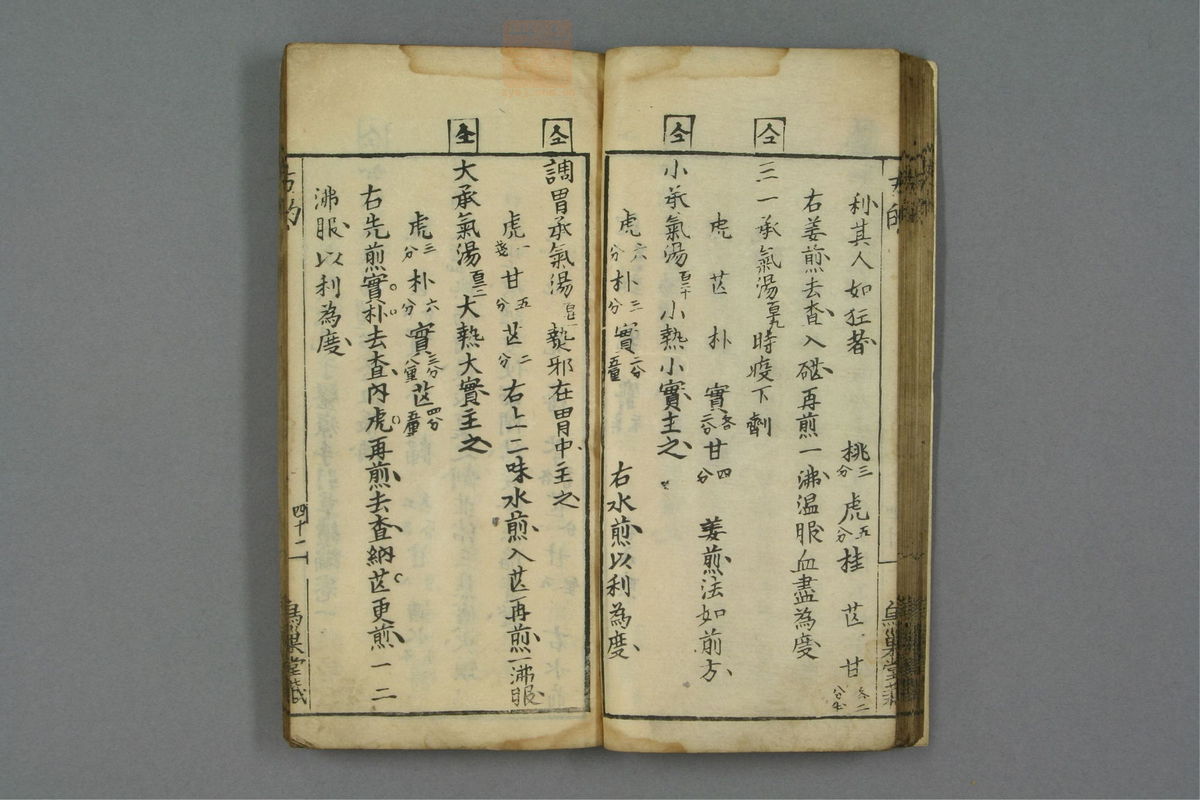 利其人如狂者 桃三分虎五分桂 芒 甘各二分
右姜煎去査入硭再煎一沸温服血盡為度
仝 三一承氣湯百十九時疫下劑
虎 芒 朴 實各二分甘四分 姜煎法如前方
仝 小承氣湯百二十小熱小實主之
虎六分朴三分實二分五厘 右水煎以利為度
仝 調胃承氣湯百二一熱邪在胃中主之
虎一戔甘五分芒二分右上二味水煎入芒再煎一沸服
仝 大承氣湯百二二大熱大實主之
虎三分朴六分實三分八厘芒四分五厘
右先煎實朴去査内虎再煎去査納芒更煎一二
沸服以利為度
四十二
烏巢堂藏